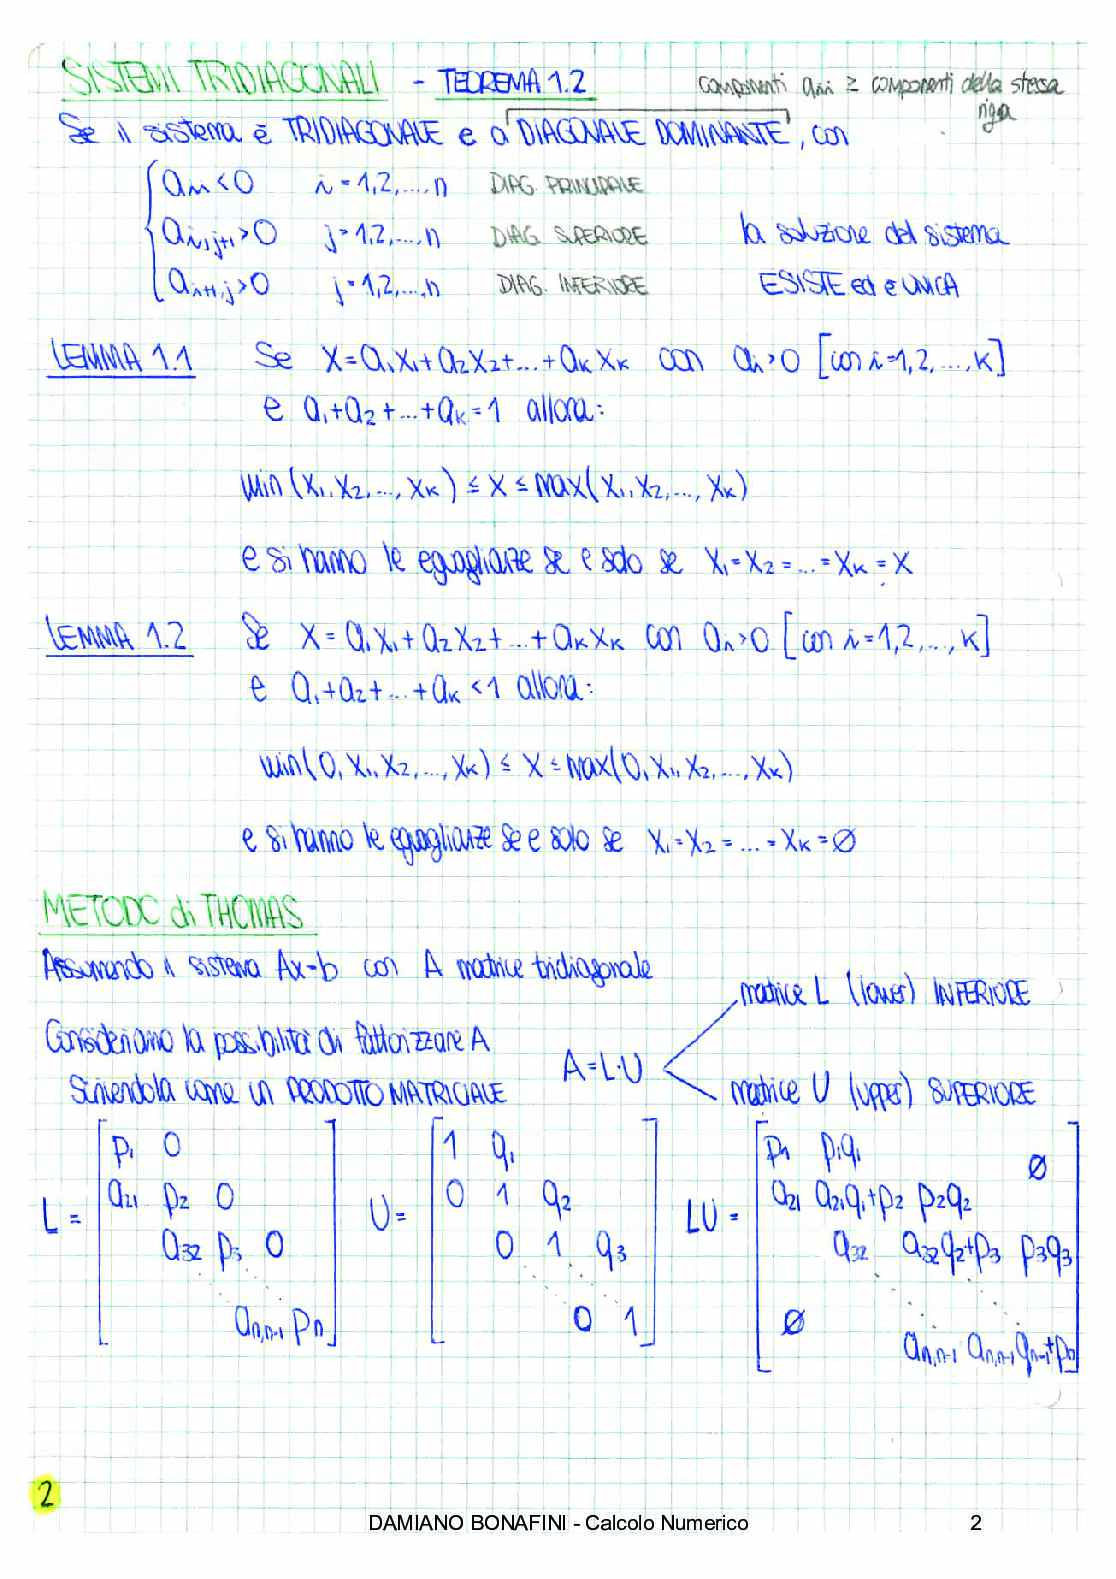 SISTEMI TRIDIAGONALI - TEOREMA 1.2 componenti aii ≥ componenti della stessa riga
Se il sistema è TRIDIAGONALE e a DIAGONALE DOMINANTE, con
aii < 0 i = 1,2,....,n DIAG. PRINCIPALE
ai,j+1 > 0 j = 1,2,...,n DIAG. SUPERIORE la soluzione del sistema
ai+1,j > 0 j = 1,2,...,n DIAG. INFERIORE ESISTE ed è UNICA
LEMMA 1.1 Se X = a1X1 + a2X2 + ... + aKXK con ai > 0 [con i = 1,2,...,K]
e a1 + a2 + ... + aK = 1 allora:
min (X1, X2, ..., XK) ≤ X ≤ max(X1, X2, ..., XK)
e si hanno le eguaglianze se e solo se X1 = X2 = ... = XK = X
LEMMA 1.2 Se X = a1X1 + a2X2 + ... + aKXK con ai > 0 [con i = 1,2,...,K]
e a1 + a2 + ... + aK < 1 allora:
min(0, X1, X2, ..., XK) ≤ X ≤ max(0, X1, X2, ..., XK)
e si hanno le eguaglianze se e solo se X1 = X2 = ... = XK = ∅
METODO di THOMAS
Assumendo il sistema Ax=b con A matrice tridiagonale
matrice L (lower) INFERIORE
Consideriamo la possibilità di fattorizzare A
A = L·U
Scrivendola come un PRODOTTO MATRICIALE matrice U (upper) SUPERIORE
p1 0 1 q1 p1 p1q1 ∅
a21 p2 0 0 1 q2 a21 a21q1+p2 p2q2
L = U = LU =
a32 p3 0 0 1 q3 a32 a32q2+p3 p3q3
an,n-1 pn 0 1 ∅ an,n-1 an,n-1qn-1+pn
2
DAMIANO BONAFINI - Calcolo Numerico 2